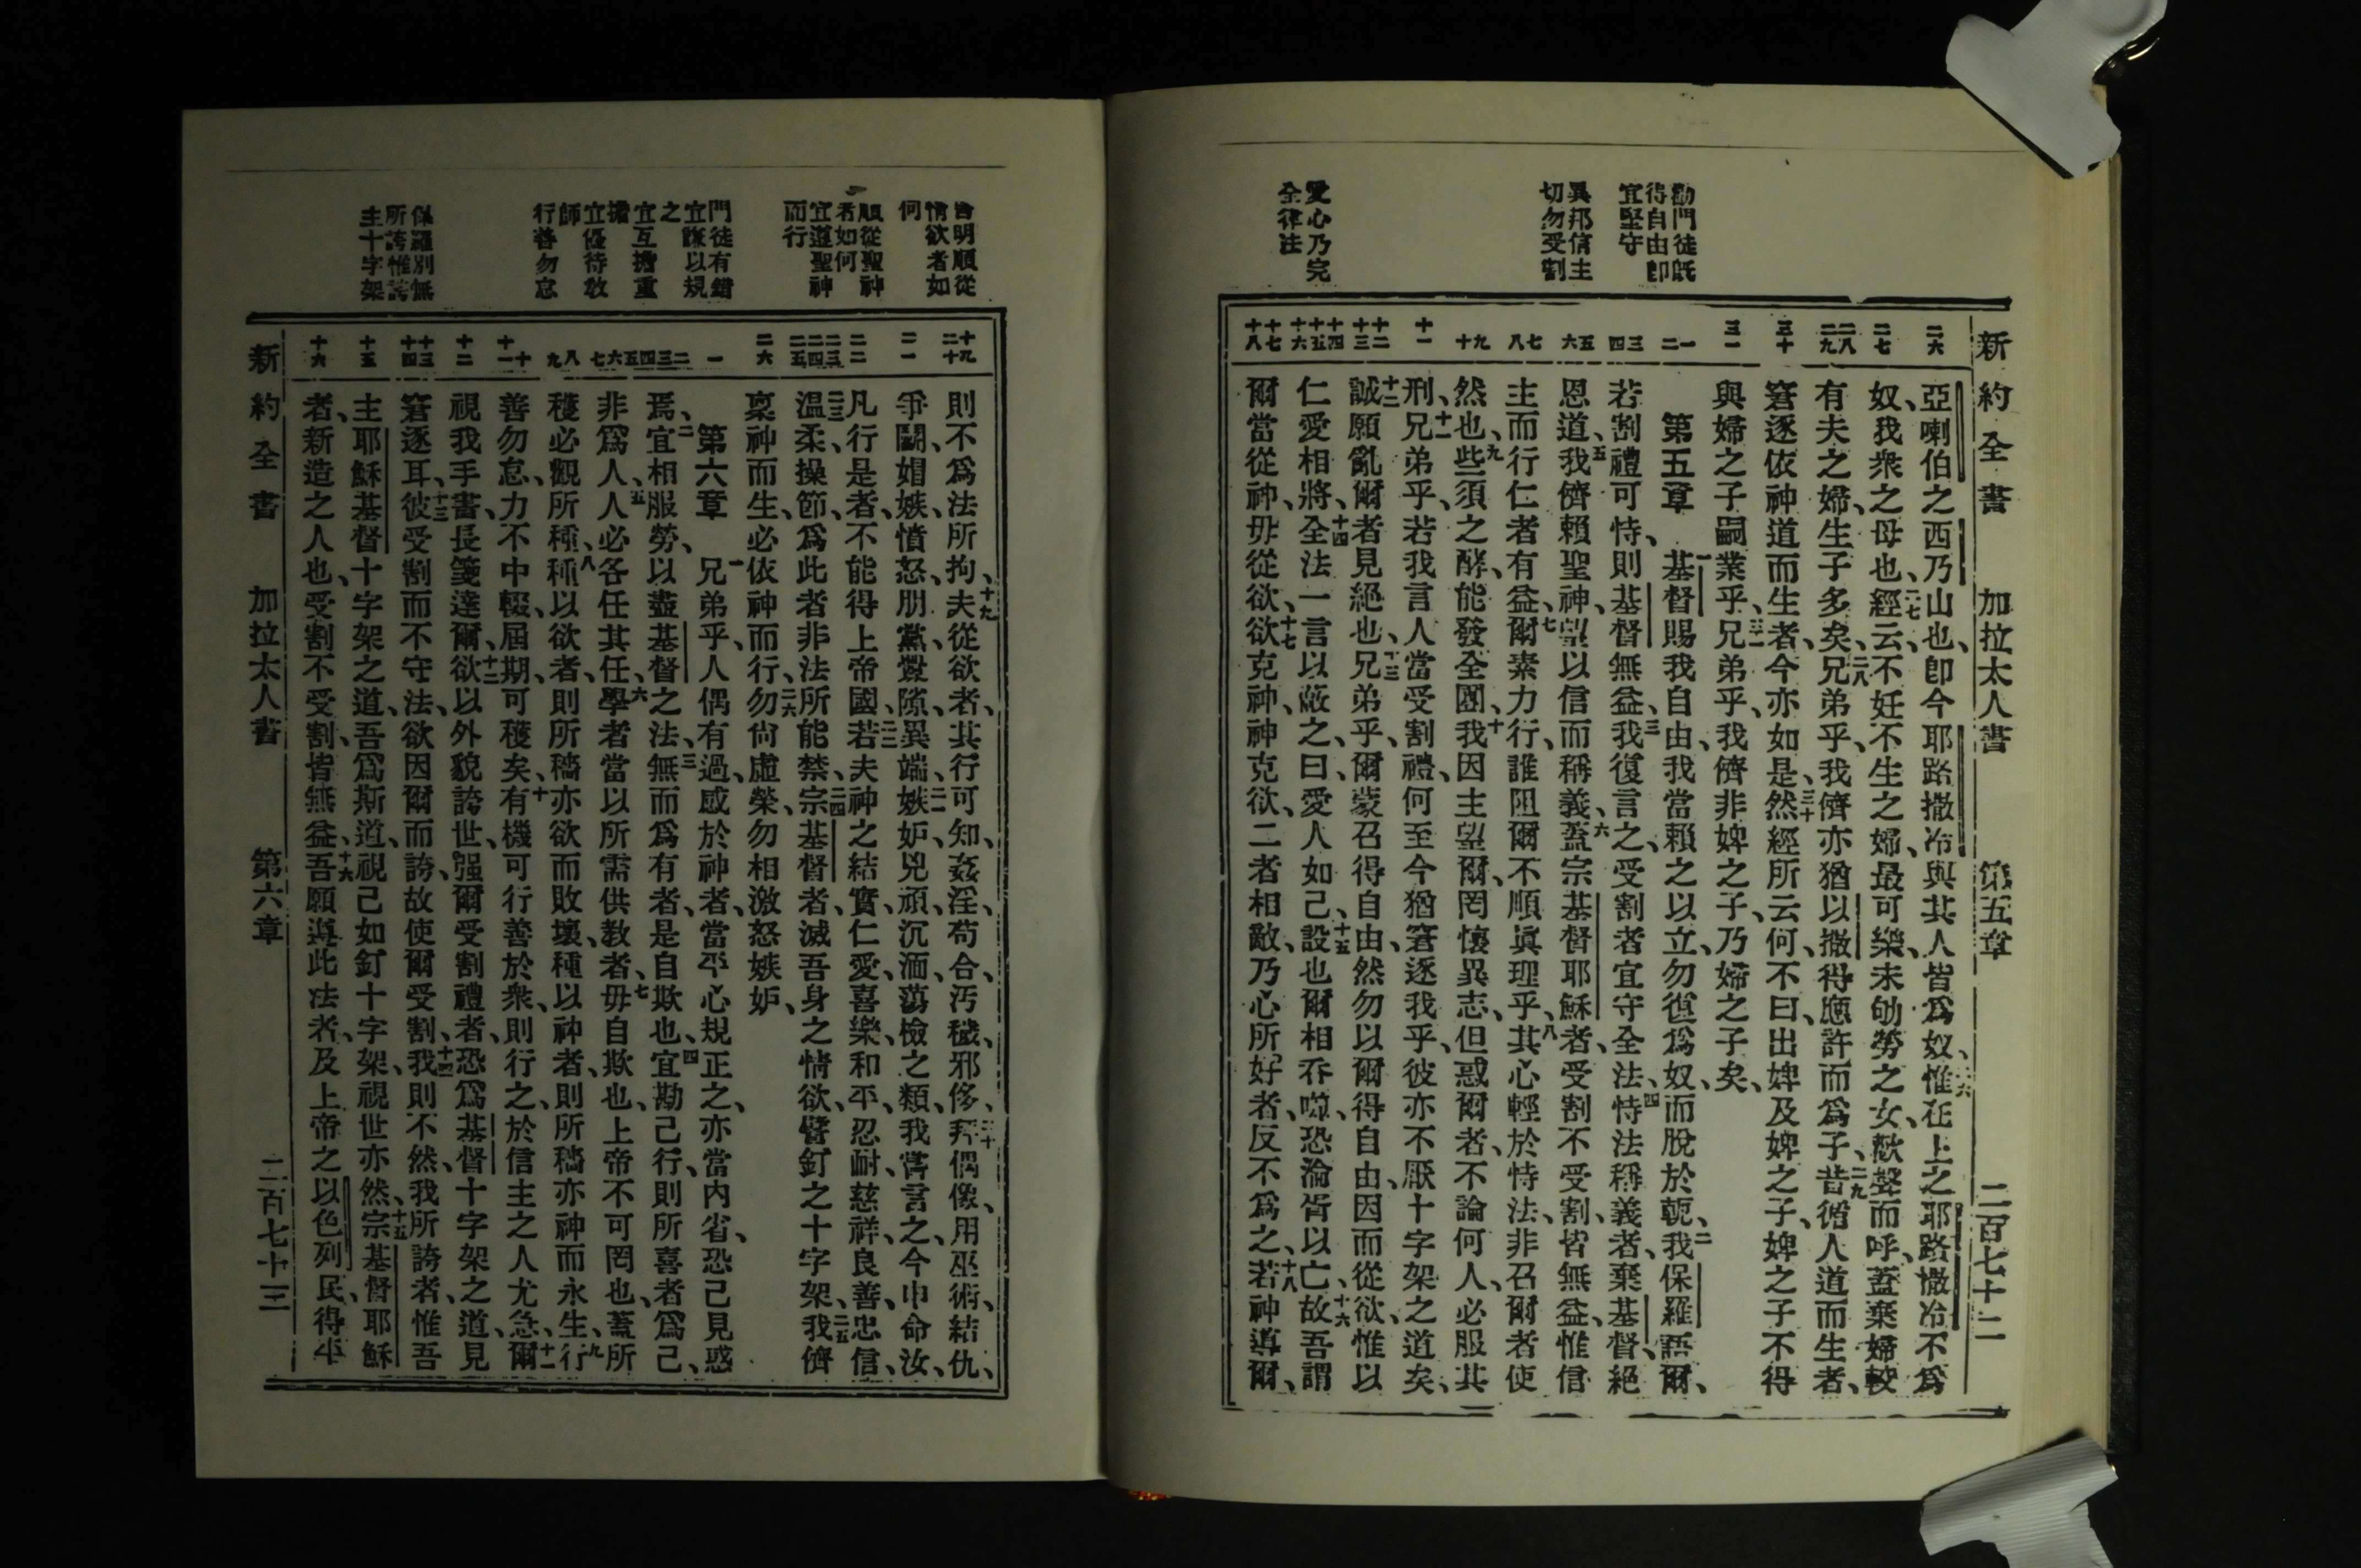 新約全書 加拉太人書 第五章 二百七十二
勸門徒旣
得自由卽
宜堅守
異邦信主
切勿受割
愛心乃完
全律法
二六
二七
二八 二九
三十
三一
一 二
三 四
五 六
七 八
九 十
十一
十二 十三
十四 十五 十六
十七 十八
亞喇伯之西乃山也、卽今耶路撒冷與其人皆爲奴、二六惟在上之耶路撒冷不爲
奴、我衆之母也、二七經云、不妊不生之婦、最可樂、未劬勞之女、歡聲而呼、蓋棄婦較
有夫之婦、生子多矣、二八兄弟乎、我儕亦猶以撒得應許而爲子、二九昔循人道而生者、
窘逐依神道而生者、今亦如是、三十然經所云何、不曰、出婢及婢之子、婢之子不得
與婦之子嗣業乎、三一兄弟乎、我儕非婢之子、乃婦之子矣、
第五章 一基督賜我自由、我當賴之以立、勿復爲奴、而脫於軛、二我保羅語爾、
若割禮可恃、則基督無益、三我復言之、受割者宜守全法、四恃法稱義者、棄基督、絕
恩道、五我儕賴聖神、望以信而稱義、六蓋宗基督耶穌者、受割不受割、皆無益、惟信
主而行仁者有益、七爾素力行、誰阻爾不順眞理乎、八其心輕於恃法、非召爾者使
然也、九些須之酵、能發全團、十我因主望爾、罔懷異志、但惑爾者、不論何人、必服其
刑、十一兄弟乎、若我言人當受割禮、何至今猶窘逐我乎、彼亦不厭十字架之道矣、
十二誠願亂爾者見絕也、十三兄弟乎、爾蒙召得自由、然勿以爾得自由、因而從欲、惟以
仁愛相將、十四全法一言以蔽之、曰、愛人如己、十五設也爾相吞噬、恐淪胥以亡、十六故吾謂
爾當從神、毋從欲、十七欲克神、神克欲、二者相敵、乃心所好者、反不爲之、十八若神導爾、
旨明順從
情欲者如
何
順從聖神
者如何
宜遵聖神
而行
門徒有錯
宜謙以規
之
宜互擔重
擔
宜優待敎
師
行善勿怠
保羅別無
所誇惟誇
主十字架
十九 二十
二一
二二
二三 二四 二五
二六
一
二 三 四 五
六 七
八 九
十 十一
十二
十三 十四
十五
十六
則不爲法所拘、十九夫從欲者、其行可知、姦淫、苟合、汚穢、邪侈、二十拜偶像、用巫術、結仇、
爭鬬、媢嫉、憤怒、朋黨、釁隙、異端、二一嫉妒、兇頑、沉湎、蕩檢之類、我嘗言之、今申命汝、
凡行是者、不能得上帝國、二二若夫神之結實、仁愛、喜樂、和平、忍耐、慈祥、良善、忠信、
二三溫柔、操節、爲此者非法所能禁、二四宗基督者、滅吾身之情欲、譬釘之十字架、二五我儕
稟神而生、必依神而行、二六勿尙虛榮、勿相激怒嫉妒、
第六章 一兄弟乎、人偶有過、感於神者、當平心規正之、亦當內省、恐己見惑
焉、二宜相服勞、以盡基督之法、三無而爲有者、是自欺也、四宜勘己行、則所喜者爲己、
非爲人、五人必各任其任、六學者當以所需供敎者、七毋自欺也、上帝不可罔也、蓋所
穫必觀所種、八種以欲者、則所穡亦欲而敗壞、種以神者、則所穡亦神而永生、九行
善勿怠、力不中輟、屆期可穫矣、十有機可行善於衆、則行之、於信主之人尤急、十一爾
視我手書長箋達爾、十二欲以外貌誇世、强爾受割禮者、恐爲基督十字架之道、見
窘逐耳、十三彼受割而不守法、欲因爾而誇、故使爾受割、十四我則不然、我所誇者、惟吾
主耶穌基督十字架之道、吾爲斯道、視己如釘十字架、視世亦然、十五宗基督耶穌
者、新造之人也、受割不受割、皆無益、十六吾願遵此法者、及上帝之以色列民、得平
新約全書 加拉太人書 第六章 二百七十三